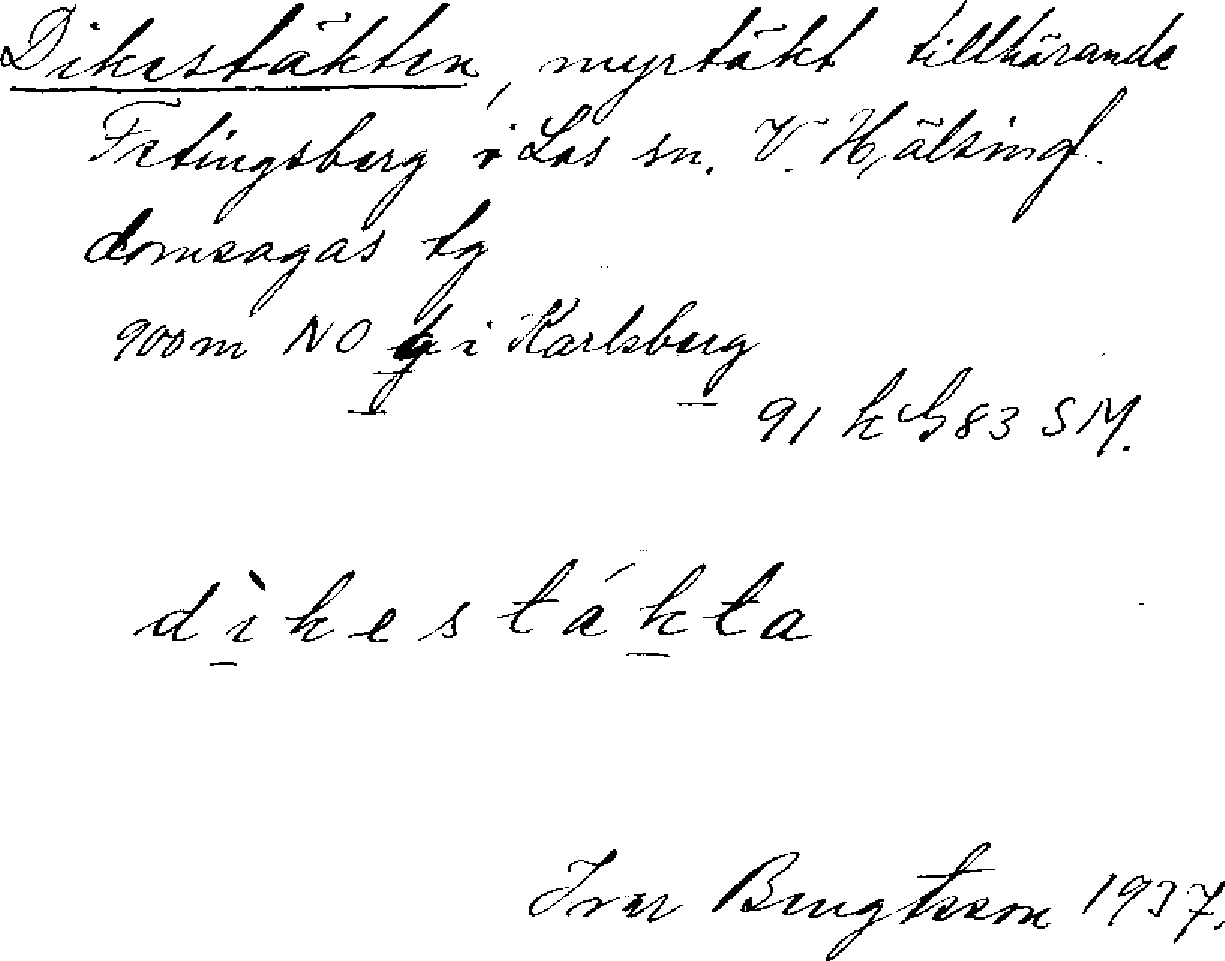 Dikestäkten, myrtäkt tillhörande
Fetingsberg i Los sn. V. Hälsingl.
domsagas tg
900m NO g i Karlsberg
91 k G83 SM.
dìkestákta
Ivar Bengtsson 1937.